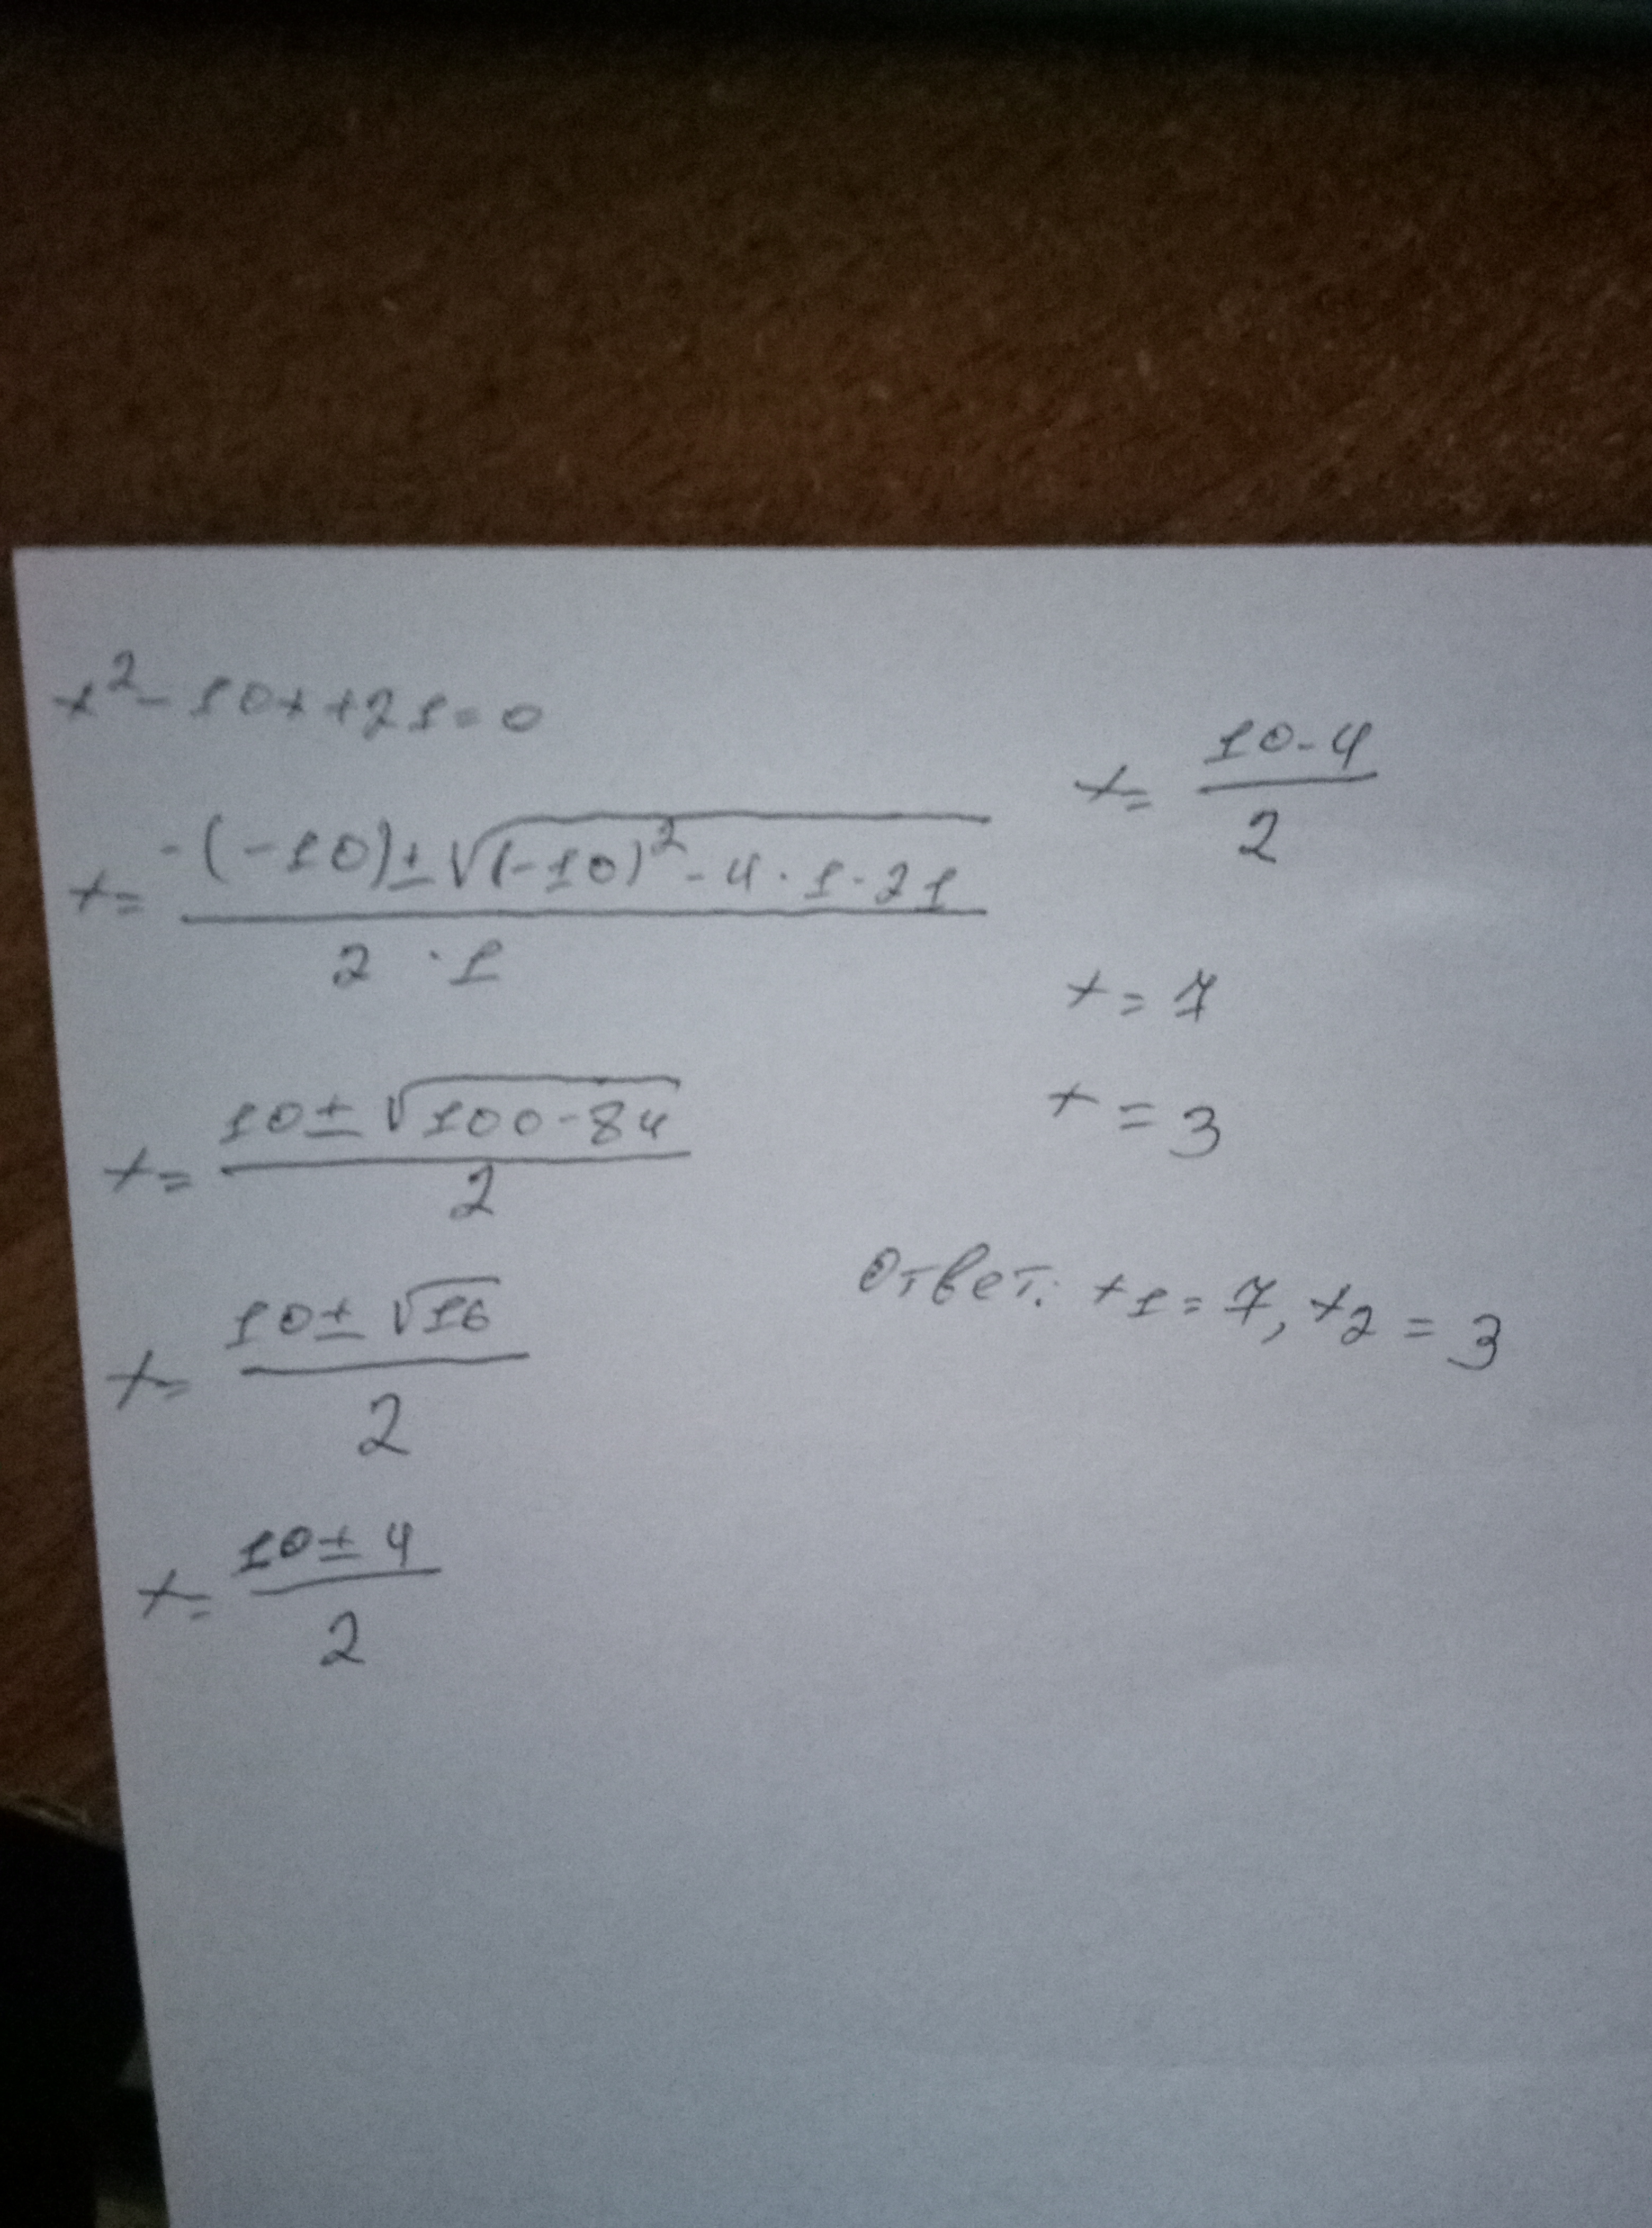 x² - 10x + 21 = 0
x = (-(-10) ± √((-10)² - 4 · 1 · 21)) / (2 · 1)
x = (10 ± √(100 - 84)) / 2
x = (10 ± √16) / 2
x = (10 ± 4) / 2
x = (10 - 4) / 2
x = 7
x = 3
Ответ: x₁ = 7, x₂ = 3